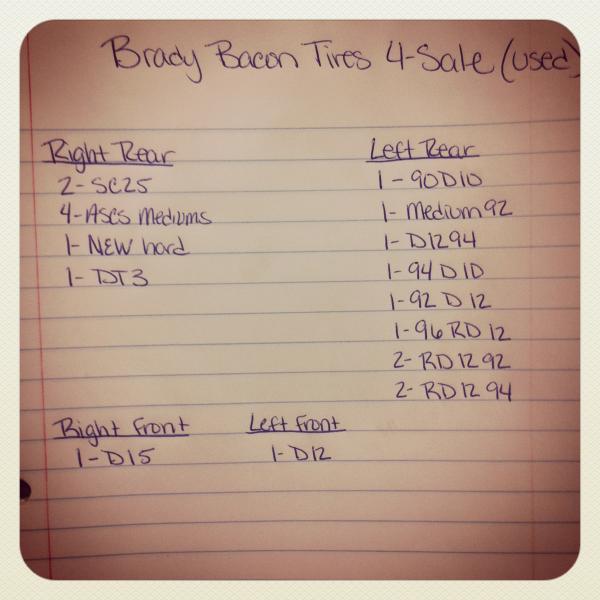 Brady Bacon Tires 4-Sale (used)
Right Rear
2- SC25
4-ASCS Mediums
1- NEW hard
1- DT3
Left Rear
1-90D10
1- Medium 92
1- D12 94
1-94 D10
1-92 D 12
1-96 RD 12
2- RD12 92
2- RD12 94
Right Front
1-D15
Left Front
1-D12